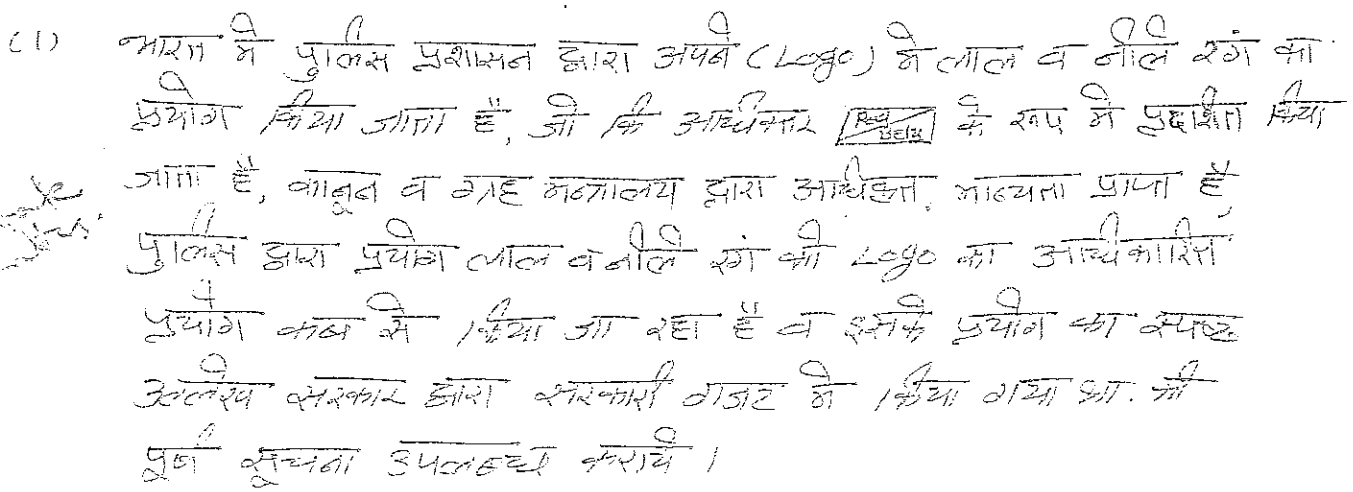 (1) भारत मे पुलिस प्रशासन द्वारा अपने (Logo) मे लाल व नीले रंग का
प्रयोग किया जाता है, जो कि अधिकतर Red Belu के रूप मे प्रदर्शित किया
जाता है, कानून व ग्रह मन्त्रालय द्वारा अधिकृत, मान्यता प्राप्त है,
पुलिस द्वारा प्रयोग लाल व नीले रंग की Logo का आधिकारित
प्रयोग कब से किया जा रहा है व इसके प्रयोग का स्पष्ट
उल्लेख सरकार द्वारा सरकारी गजट मे किया गया था. की
पूर्ण सूचना उपलब्ध कराये ।